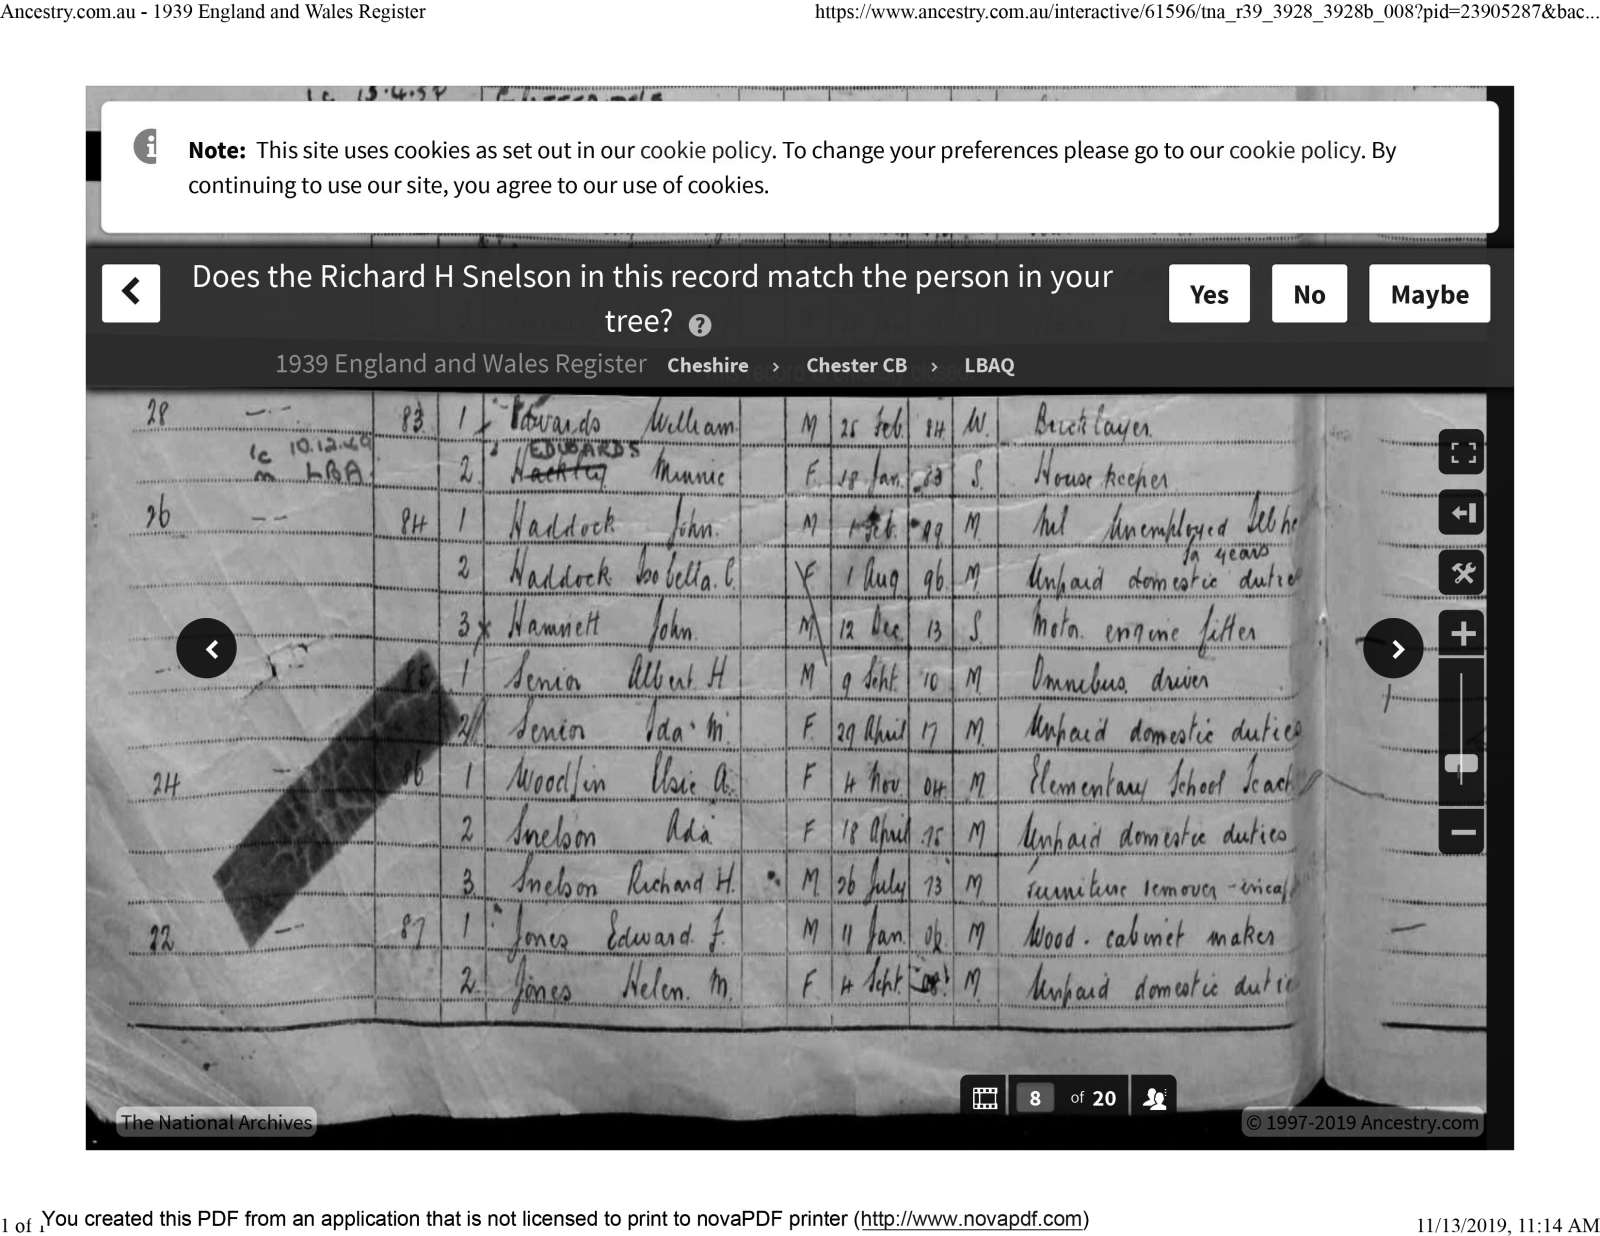 Ancestry.com.au - 1939 England and Wales Register https://www.ancestry.com.au/interactive/61596/tna_r39_3928_3928b_008?pid=23905287&bac...
Note: This site uses cookies as set out in our cookie policy. To change your preferences please go to our cookie policy. By
continuing to use our site, you agree to our use of cookies.
Does the Richard H Snelson in this record match the person in your
tree? ?
Yes No Maybe
1939 England and Wales Register Cheshire > Chester CB > LBAQ
28 83 1 Edwards William M 25 Feb 84 W. Bricklayer
10.12.49 EDWARDS
LBA 2 Minnie F 18 Jan 83 S. House keeper
26 84 1 Haddock John. M Feb. 99 M. Unemployed
years
2 Haddock Isobella. C. F 1 Aug 96 M Unpaid domestic duties
3 x Hamnett John. M 12 Dec. 13 S. Motor engine fitter
85 1 Senior Albert H M 9 Sept. 10 M Omnibus driver
2 Senior Ida M. F 29 April 17 M. Unpaid domestic duties
24 86 1 Woodfin Elsie A. F 4 Nov 04 M. Elementary School Teach
2 Snelson Ada F 18 April 75 M Unpaid domestic duties
3. Snelson Richard H. M. 26 July 73 M Furniture remover
22 87 1 Jones Edward. F. M 11 Jan. 06 M Wood. cabinet maker
2. Jones Helen. M. F 4 Sept. 08 M. Unpaid domestic dutie
8 of 20
The National Archives © 1997-2019 Ancestry.com
1 of 1 You created this PDF from an application that is not licensed to print to novaPDF printer (http://www.novapdf.com) 11/13/2019, 11:14 AM